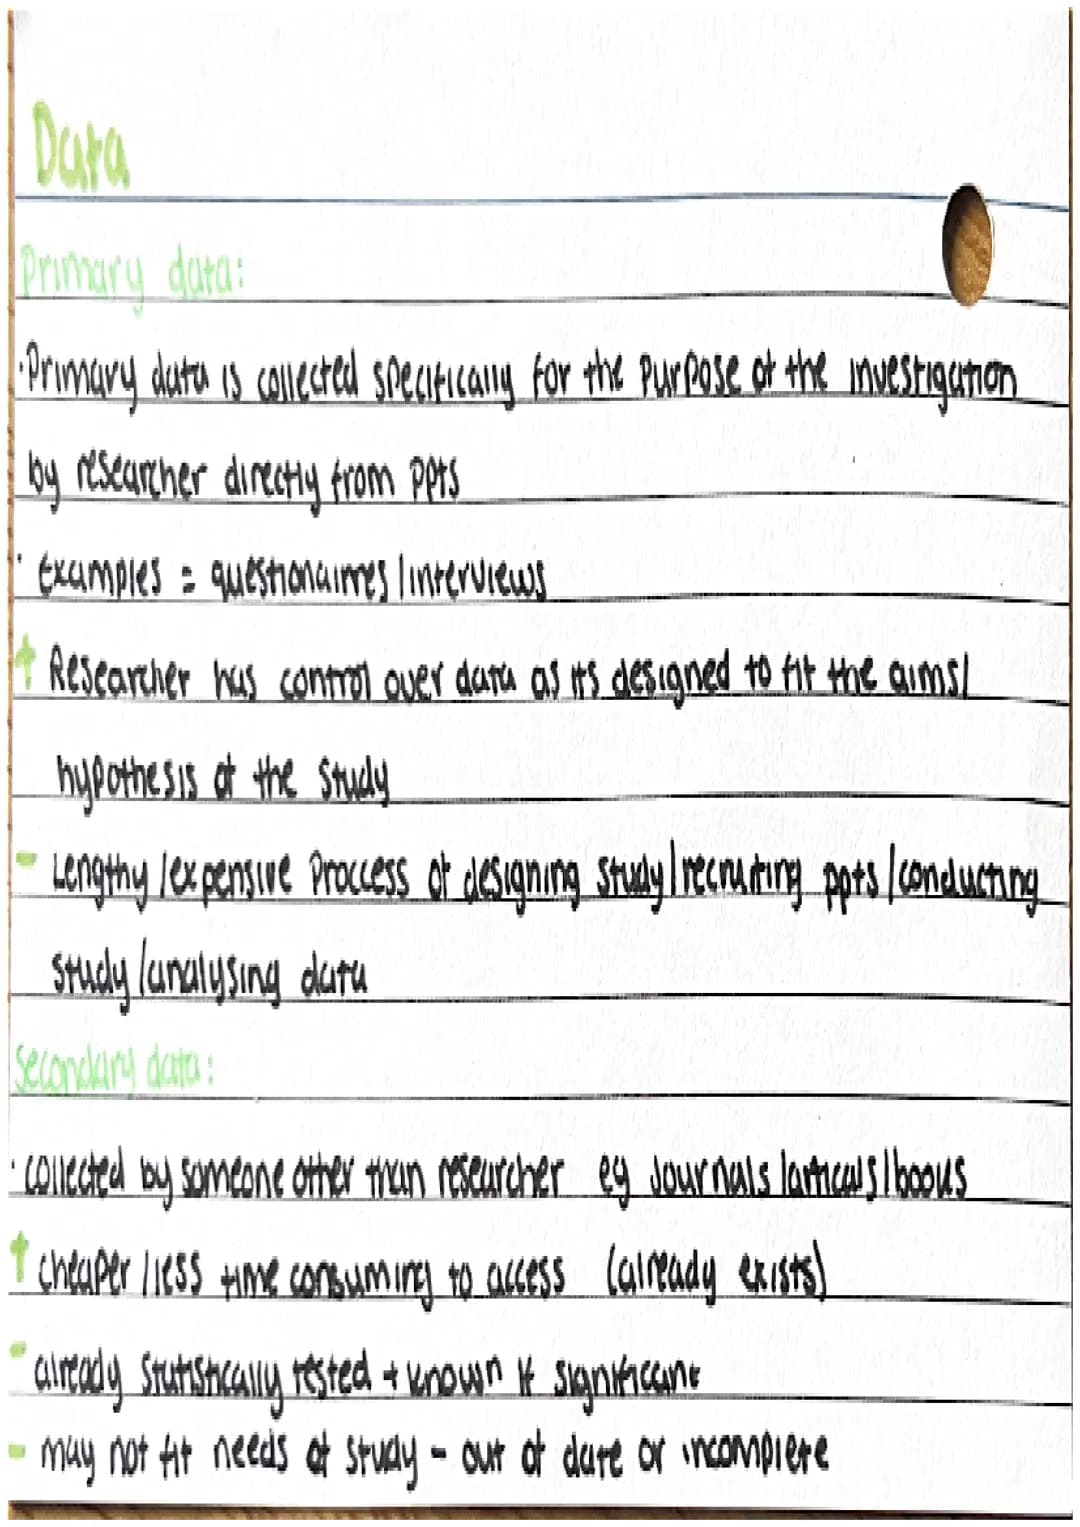 Data
Primary data:
·Primary data is collected specifically for the purpose of the investigation
by researcher directly from ppts
· Examples = questionaires/interviews
+ Researcher has control over data as its designed to fit the aims/
hypothesis of the study
- Lengthy/expensive proccess of designing study/recruiting ppts/conducting
study/analysing data
Secondary data:
· collected by someone other than researcher eg Journals/articals/books
+ cheaper/less time consuming to access (already exists)
- already statistically tested + known if significant
- may not fit needs of study - out of date or incomplete